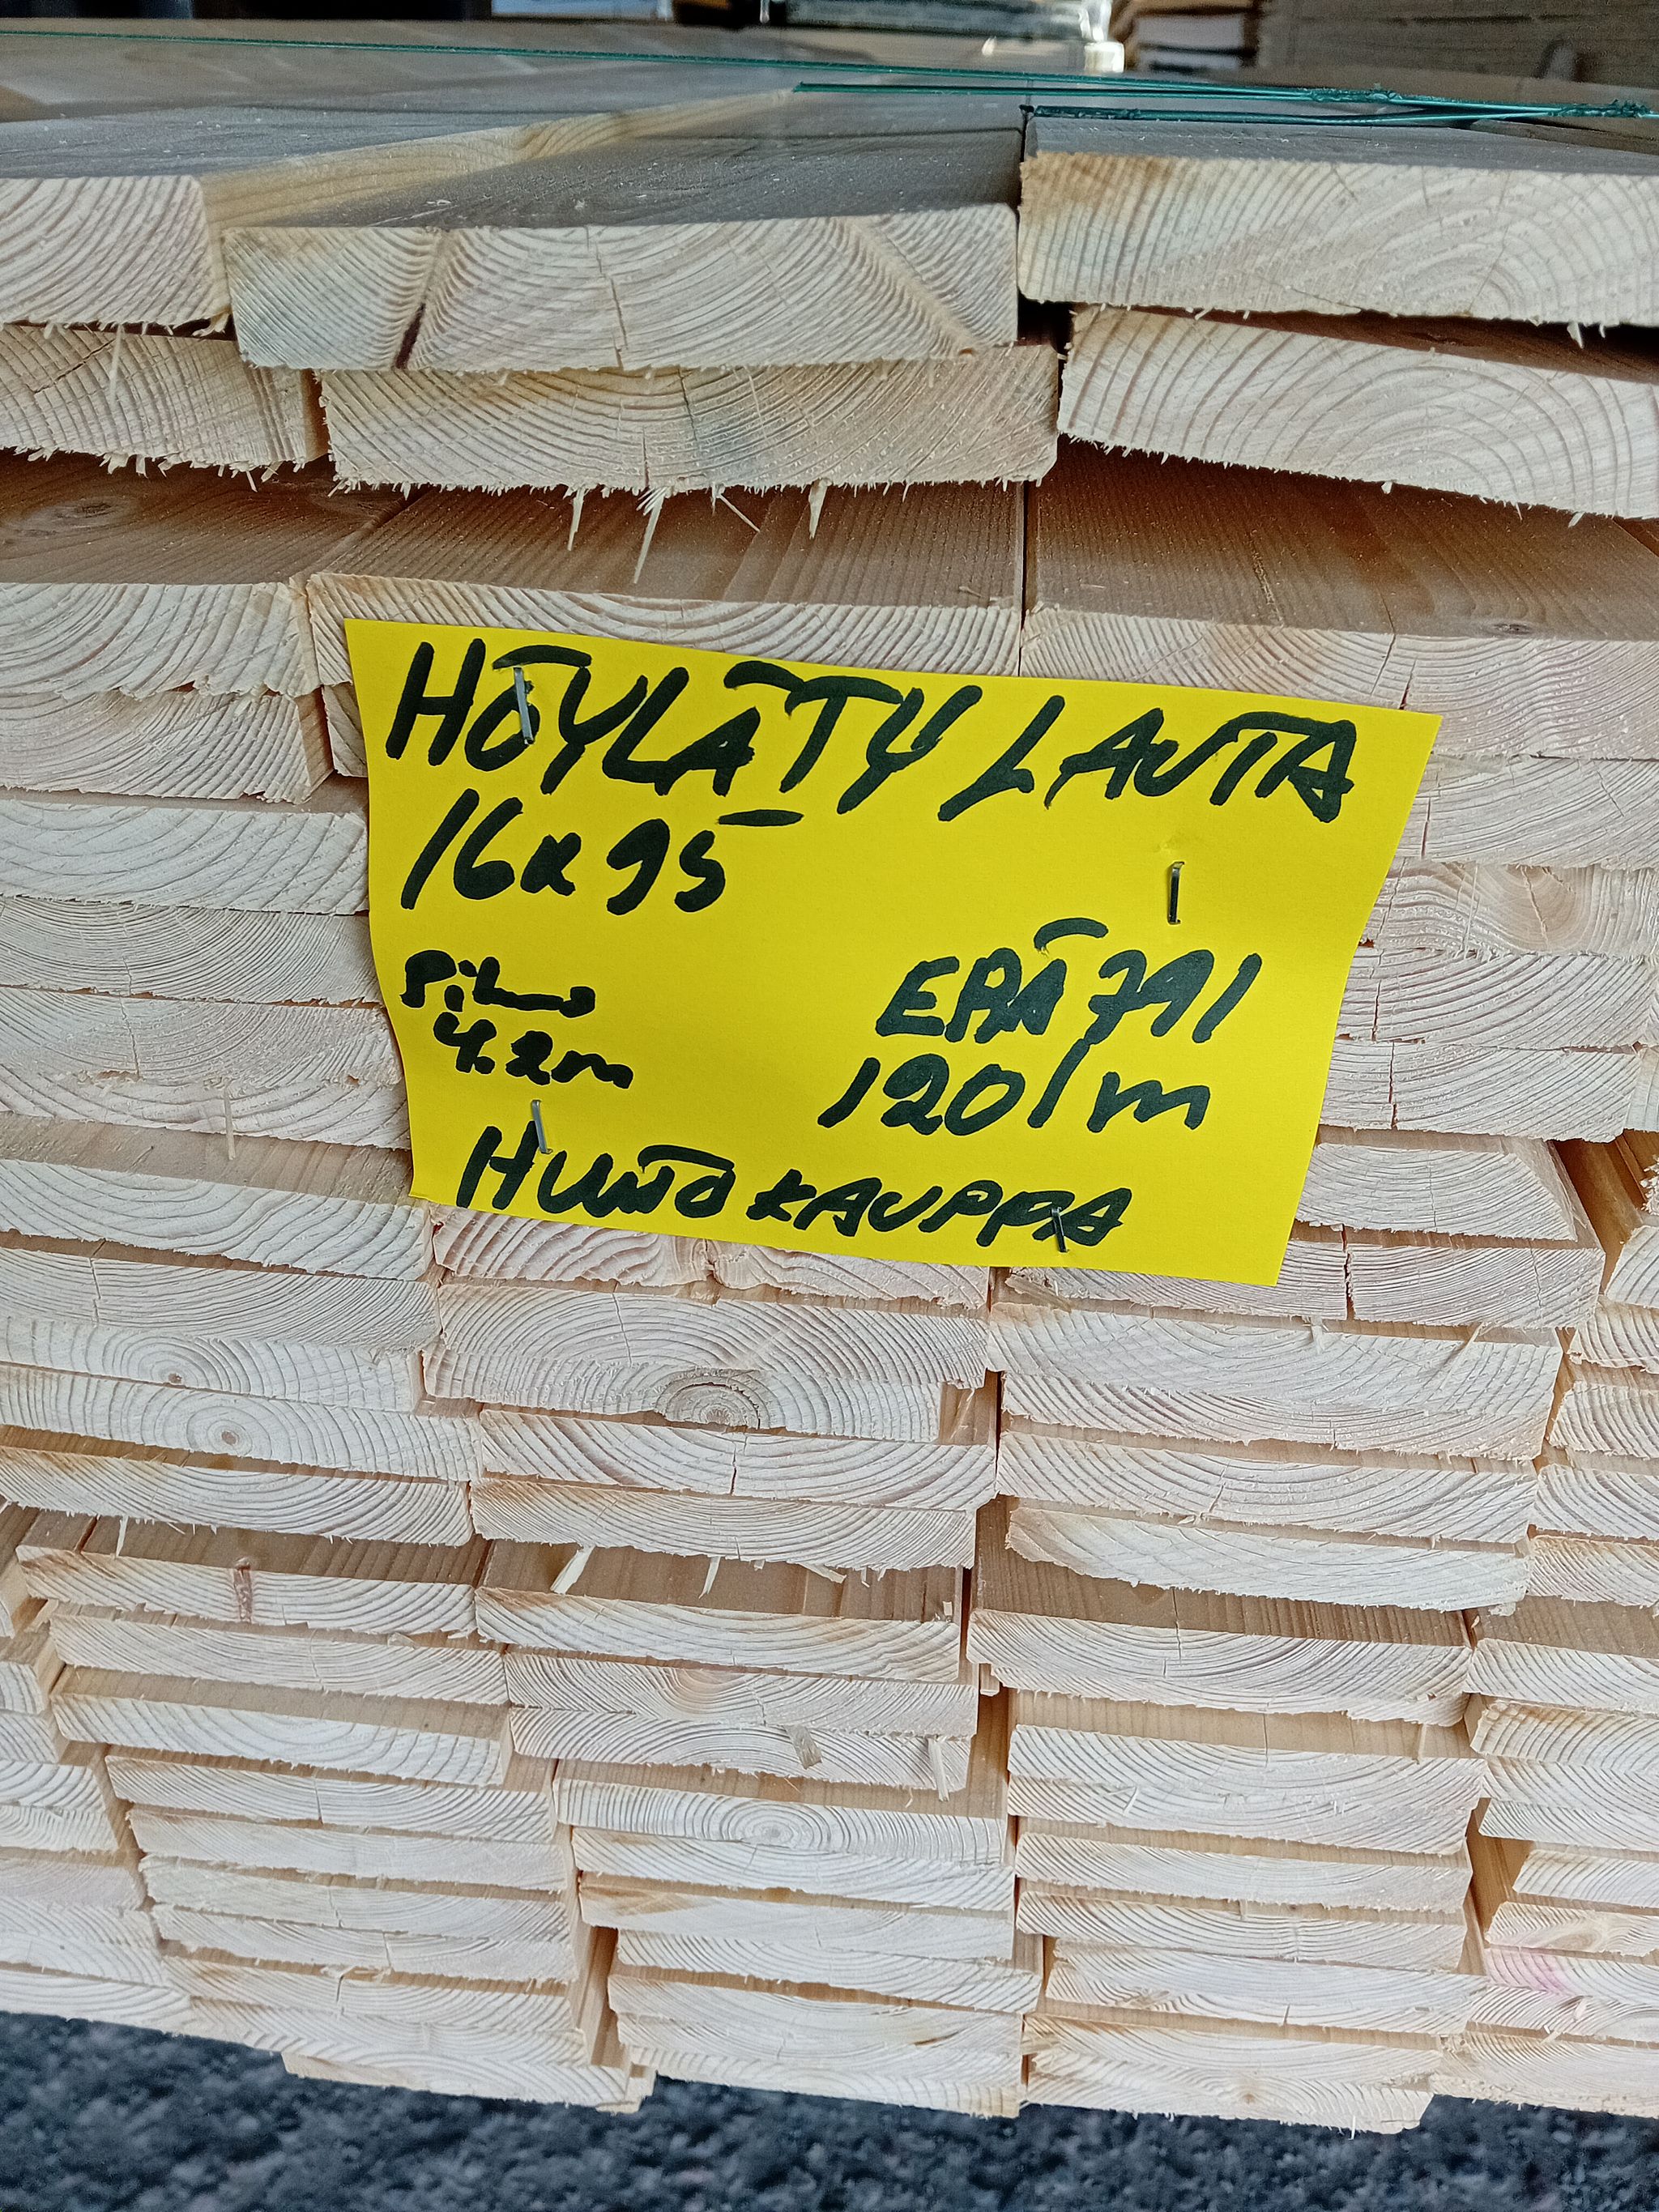 HÖYLÄTTY LAUTA
16x95
Pituus
4.2m
ERÄ 791
120/m
HUUTOKAUPPA